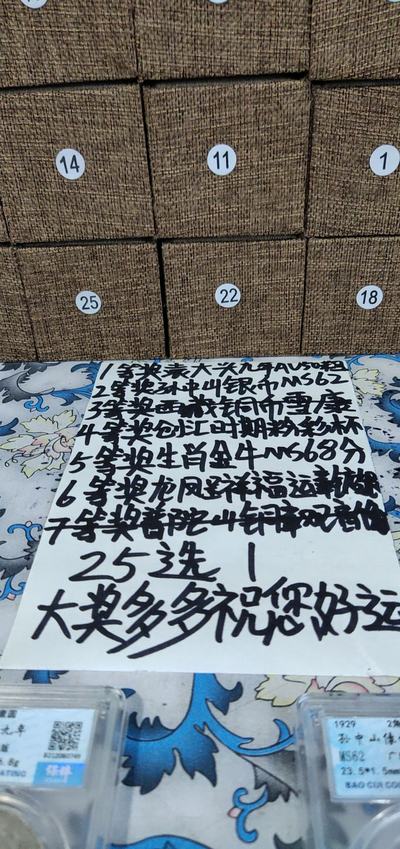 14
11
1
25
22
18
1等奖袁大头九年AU50
2等奖孙中山银币MS62
3等奖西藏铜币雪康
4等奖创汇时期粉彩杯
5等奖生肖金牛MS68分
6等奖龙凤呈祥福运
7等奖普陀山铜章观音
25选1
大奖多多祝您好运
1929
孙中山像
MS62
23.5*1.5mm